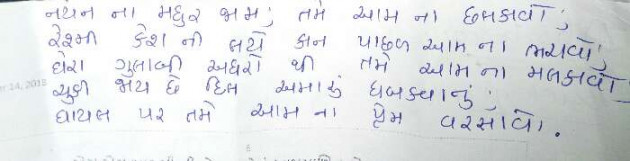 નયન ના મધુર જામ; તમે આમ ના છલકાવો;
રેશ્મી કેશ ની લટો કાન પાછળ આમ ના ભરાવો;
ઘેરા ગુલાબી અધરો થી તમે આમ ના મલકાવો;
ચુકી જાય છે દિલ અમારું ધબકવાનું;
ઘાયલ પર તમે આમ ના પ્રેમ વરસાવો.